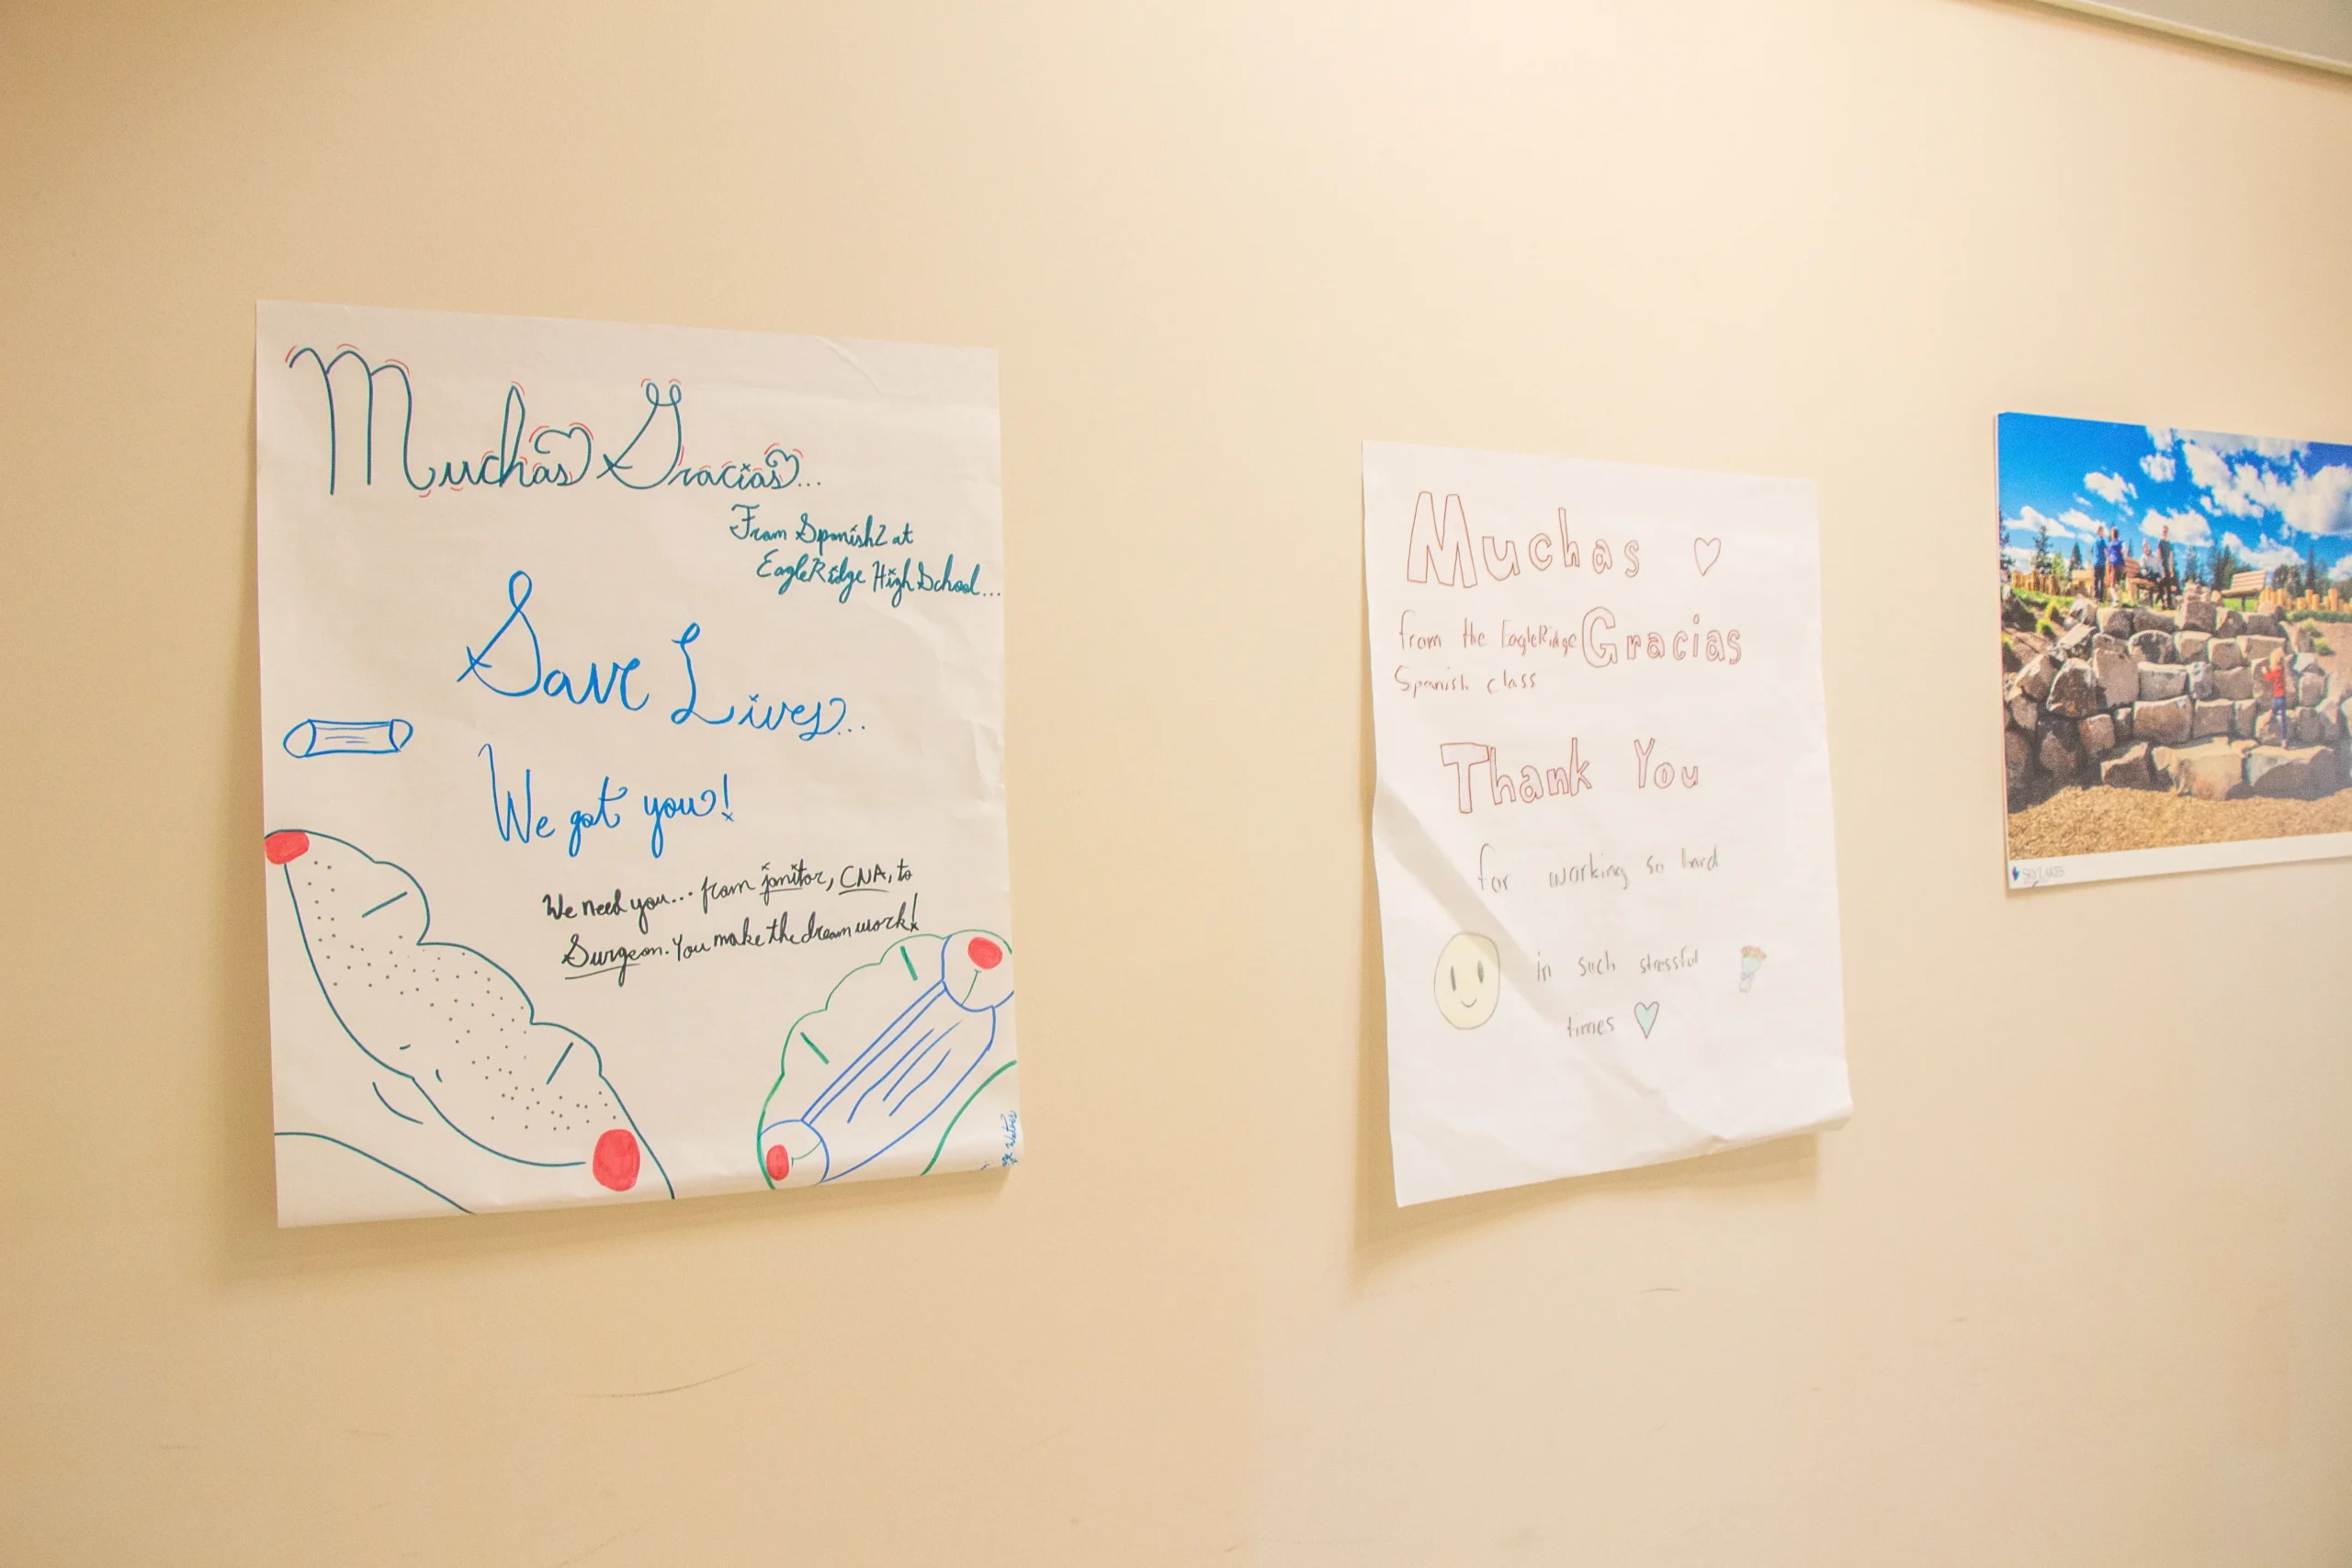 Muchas Gracias...
From Spanish2 at
EagleRidge High School...
Save Lives...
We got you!
We need you... from janitor, CNA, to
Surgeon. You make the dream work!
Muchas
from the EagleRidge Gracias
Spanish class
Thank You
for working so hard
in such stressful
times
SKY LAKES